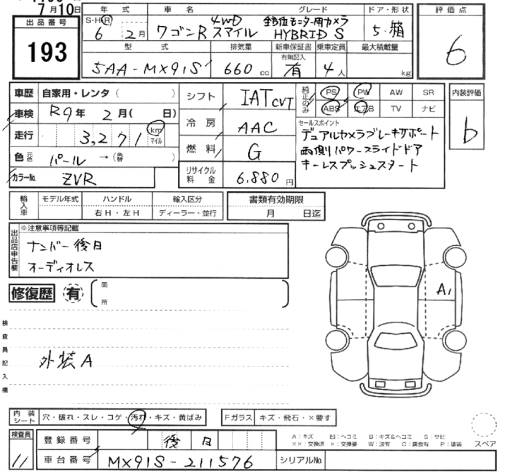 7月10日
出品番号
193
年式 車名 グレード ドア・形状
S・H・R 6年 2月 ワゴンR スマイル 4WD 全方位モニター用カメラ HYBRID S 5 箱
型式 排気量 新車保証書 乗車定員 最大積載量
有無記入
5AA-MX91S 660cc 有 4人 kg
評価点
6
車歴 自家用・レンタ( )
車検 R9年 2月( 日)
走行 3,271 km マイル
色 元色 パール→(替色 )
カラーNo. ZVR
シフト IAT CVT
冷房 AAC
燃料 G
リサイクル料金 6,880円
純正のみ PS PW AW SR
ABS エアB TV ナビ
セールスポイント
デュアルカメラブレーキサポート
両側パワースライドドア
キーレスプッシュスタート
内装評価
b
輸入車 モデル年式 ハンドル 輸入区分
右H・左H ディーラー・並行
書類有効期限
月 日迄
出品店申告欄
※注意事項等記載
ナンバー後日
オーディオレス
修復歴 有 箇所
検査員記入欄
外装A
A1
内装シート 穴・破れ・スレ・コゲ・汚れ・キズ・黄ばみ Fガラス キズ・飛石・×要す
検査員 11
登録番号 後日
車台番号 MX91S-211576 シリアルNo.
スペア